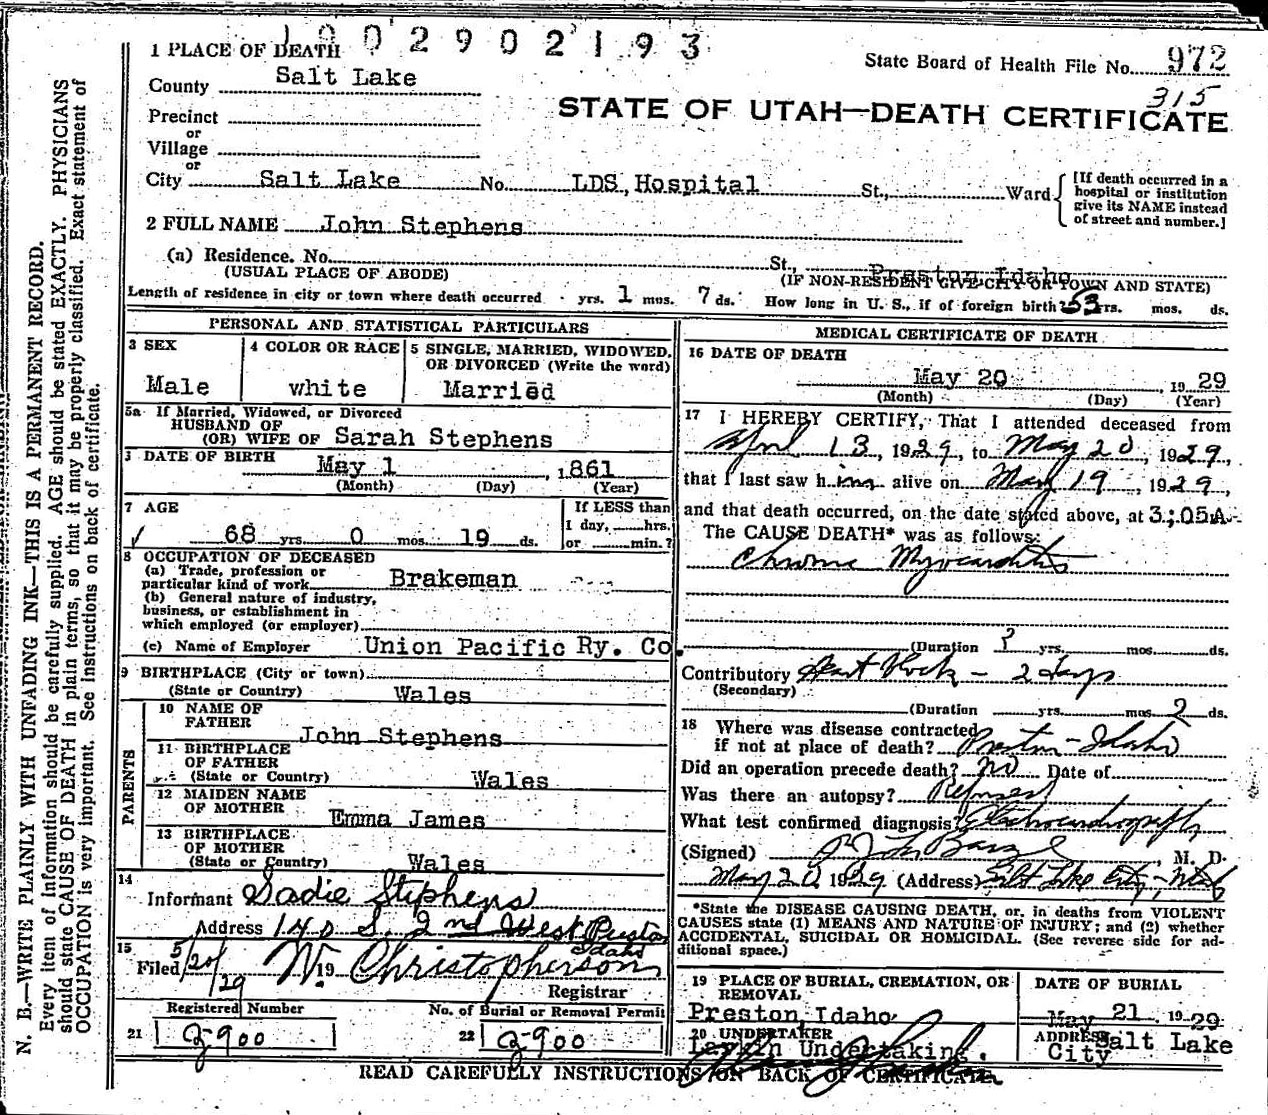 1002902193
1 PLACE OF DEATH
State Board of Health File No. 972
County Salt Lake
315
STATE OF UTAH—DEATH CERTIFICATE
Precinct
or
Village
or
City Salt Lake No. LDS, Hospital St., Ward
[If death occurred in a
hospital or institution
give its NAME instead
of street and number.]
2 FULL NAME John Stephens
(a) Residence. No. St., Preston, Idaho
(USUAL PLACE OF ABODE) (IF NON-RESIDENT GIVE CITY OR TOWN AND STATE)
Length of residence in city or town where death occurred yrs. 1 mos. 7 ds. How long in U. S., if of foreign birth? 53 yrs. mos. ds.
PERSONAL AND STATISTICAL PARTICULARS
3 SEX 4 COLOR OR RACE 5 SINGLE, MARRIED, WIDOWED,
OR DIVORCED (Write the word)
Male white Married
5a If Married, Widowed, or Divorced
HUSBAND OF
(OR) WIFE OF Sarah Stephens
DATE OF BIRTH
May 1, 1861
(Month) (Day) (Year)
7 AGE If LESS than
1 day, hrs.
68 yrs. 0 mos. 19 ds. or min.?
8 OCCUPATION OF DECEASED
(a) Trade, profession or
particular kind of work Brakeman
(b) General nature of industry,
business, or establishment in
which employed (or employer)
(c) Name of Employer Union Pacific Ry. Co.
9 BIRTHPLACE (City or town)
(State or Country) Wales
PARENTS
10 NAME OF
FATHER John Stephens
11 BIRTHPLACE
OF FATHER
(State or Country) Wales
12 MAIDEN NAME
OF MOTHER Emma James
13 BIRTHPLACE
OF MOTHER
(State or Country) Wales
14
Informant Sadie Stephens
Address 140 S. 2nd West Preston
Idaho
15
Filed 5/20/29 19 W. Christopherson
Registrar
Registered Number No. of Burial or Removal Permit
21 2900 22 2900
MEDICAL CERTIFICATE OF DEATH
16 DATE OF DEATH
May 20 1929
(Month) (Day) (Year)
17 I HEREBY CERTIFY, That I attended deceased from
April 13, 1929, to May 20, 1929,
that I last saw him alive on May 19, 1929,
and that death occurred, on the date stated above, at 3;05A.
The CAUSE DEATH* was as follows:
Chronic Myocarditis
(Duration ? yrs. mos. ds.
Contributory Heart Block - 2 days
(Secondary)
(Duration yrs. mos. 2 ds.
18 Where was disease contracted
if not at place of death? Preston - Idaho
Did an operation precede death? no Date of
Was there an autopsy? Refused
What test confirmed diagnosis? Electrocardiograph
(Signed) , M. D.
May 20 1929 (Address) Salt Lake City - Utah
*State the DISEASE CAUSING DEATH, or, in deaths from VIOLENT
CAUSES state (1) MEANS AND NATURE OF INJURY; and (2) whether
ACCIDENTAL, SUICIDAL OR HOMICIDAL. (See reverse side for ad-
ditional space.)
19 PLACE OF BURIAL, CREMATION, OR
REMOVAL
Preston, Idaho
DATE OF BURIAL
May 21 1929
20 UNDERTAKER
Larkin Undertaking.
ADDRESS Salt Lake
City
READ CAREFULLY INSTRUCTIONS ON BACK OF CERTIFICATE
N. B.—WRITE PLAINLY WITH UNFADING INK—THIS IS A PERMANENT RECORD.
Every item of information should be carefully supplied. AGE should be stated EXACTLY. PHYSICIANS
should state CAUSE OF DEATH in plain terms, so that it may be properly classified. Exact statement of
OCCUPATION is very important. See Instructions on back of certificate.